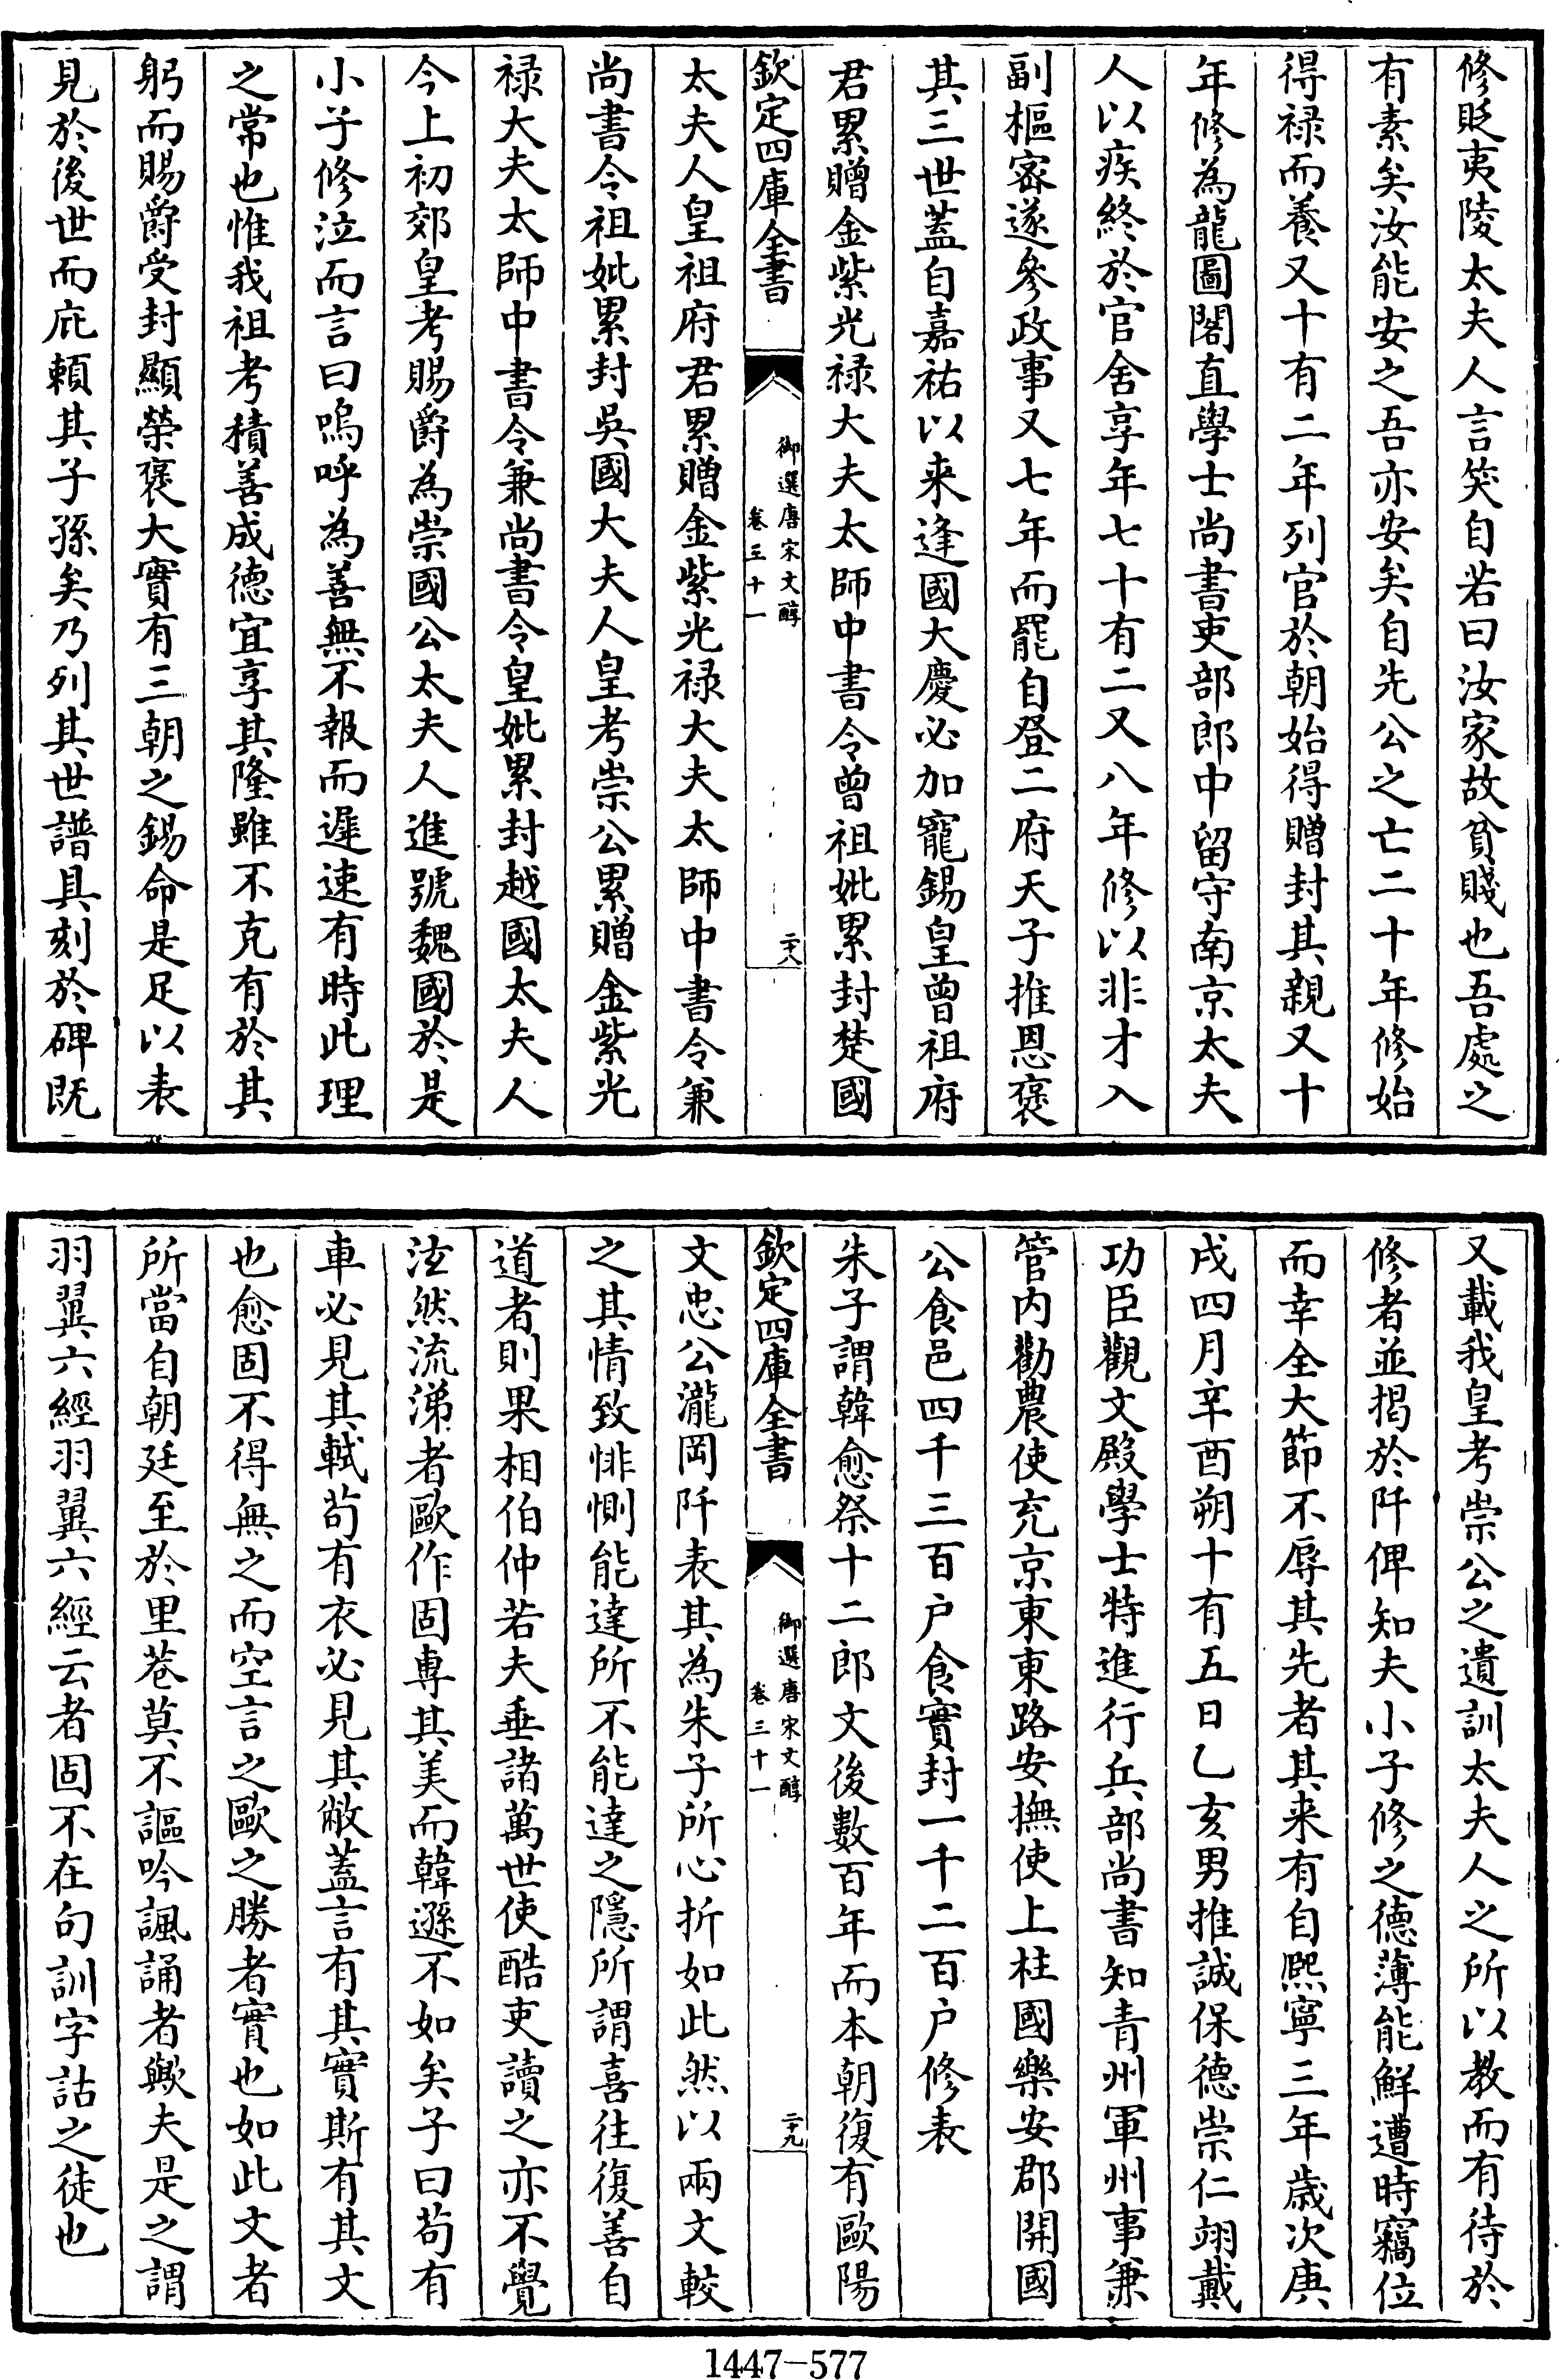 修貶夷陵太夫人言笑自若曰汝家故貧賤也吾處之
有素矣汝能安之吾亦安矣自先公之亡二十年修始
得禄而養又十有二年列官於朝始得贈封其親又十
年修為龍圖閣直學士尚書吏部郎中留守南京太夫
人以疾終於官舍享年七十有二又八年修以非才入
副樞宻遂參政事又七年而罷自登二府天子推恩褒
其三世蓋自嘉祐以来逢國大慶必加寵錫皇曾祖府
君累贈金紫光禄大夫太師中書令曾祖妣累封楚國
欽定四庫全書
御選唐宋文醇
卷三十一
二十八
太夫人皇祖府君累贈金紫光禄大夫太師中書令兼
尚書令祖妣累封吳國大夫人皇考崇公累贈金紫光
禄大夫太師中書令兼尚書令皇妣累封越國太夫人
今上初郊皇考賜爵為崇國公太夫人進號魏國於是
小子修泣而言曰嗚呼為善無不報而遲速有時此理
之常也惟我祖考積善成德宜享其隆雖不克有於其
躬而賜爵受封顯榮褒大實有三朝之錫命是足以表
見於後世而庇頼其子孫矣乃列其世譜具刻於碑既
又載我皇考崇公之遺訓太夫人之所以教而有待於
修者並掲於阡俾知夫小子修之德薄能鮮遭時竊位
而幸全大節不辱其先者其来有自熈寧三年歳次庚
戌四月辛酉朔十有五日乙亥男推誠保德崇仁翊戴
功臣觀文殿學士特進行兵部尚書知青州軍州事兼
管内勸農使充京東東路安撫使上柱國樂安郡開國
公食邑四千三百户食實封一千二百户修表
朱子謂韓愈祭十二郎文後數百年而本朝復有歐陽
欽定四庫全書
御選唐宋文醇
卷三十一
二十九
文忠公瀧岡阡表其為朱子所心折如此然以兩文較
之其情致悱惻能達所不能達之隱所謂喜往復善自
道者則果相伯仲若夫垂諸萬世使酷吏讀之亦不覺
泫然流涕者歐作固専其美而韓遜不如矣子曰茍有
車必見其軾茍有衣必見其敝蓋言有其實斯有其文
也愈固不得無之而空言之歐之勝者實也如此文者
所當自朝廷至於里巷莫不謳吟諷誦者歟夫是之謂
羽翼六經羽翼六經云者固不在句訓字詁之徒也
1447-577